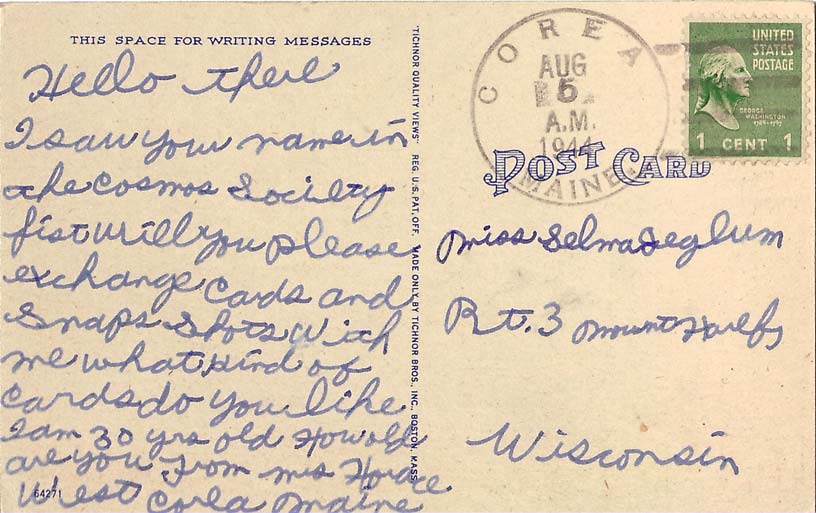 THIS SPACE FOR WRITING MESSAGES
Hello there
I saw your name in
the cosmos Society
fist will you please
exchange cards and
Snaps Shots with
me what kind of
cards do you like
I am 30 yrs old How old
are you From mis Horace
West Corea Maine
64271
"TICHNOR QUALITY VIEWS" REG. U.S. PAT. OFF. MADE ONLY BY TICHNOR BROS., INC., BOSTON, MASS.
COREA
AUG
5
A.M.
1944
MAINE.
UNITED
STATES
POSTAGE
GEORGE
WASHINGTON
1789-1797
1 CENT 1
POST CARD
Miss Selma Seglum
Rt. 3 Mount Horeb
Wisconsin